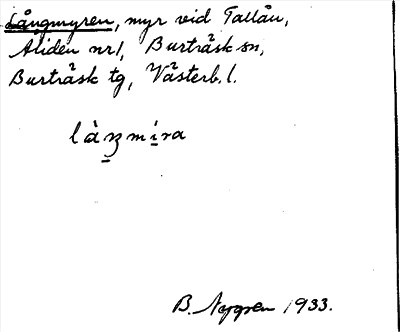 Långmyren, myr vid Tallån,
Åliden nr 1, Burträsk sn,
Burträsk tg, Västerb. l.
B. Nygren 1933.